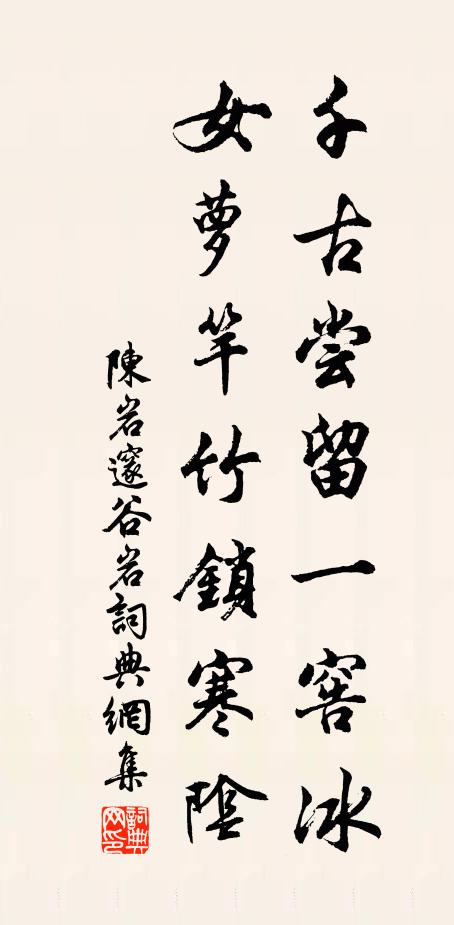 千古嘗留一窖冰
女萝竿竹鎖寒陰
陳岩邃谷岩詞典網集
詞典網印